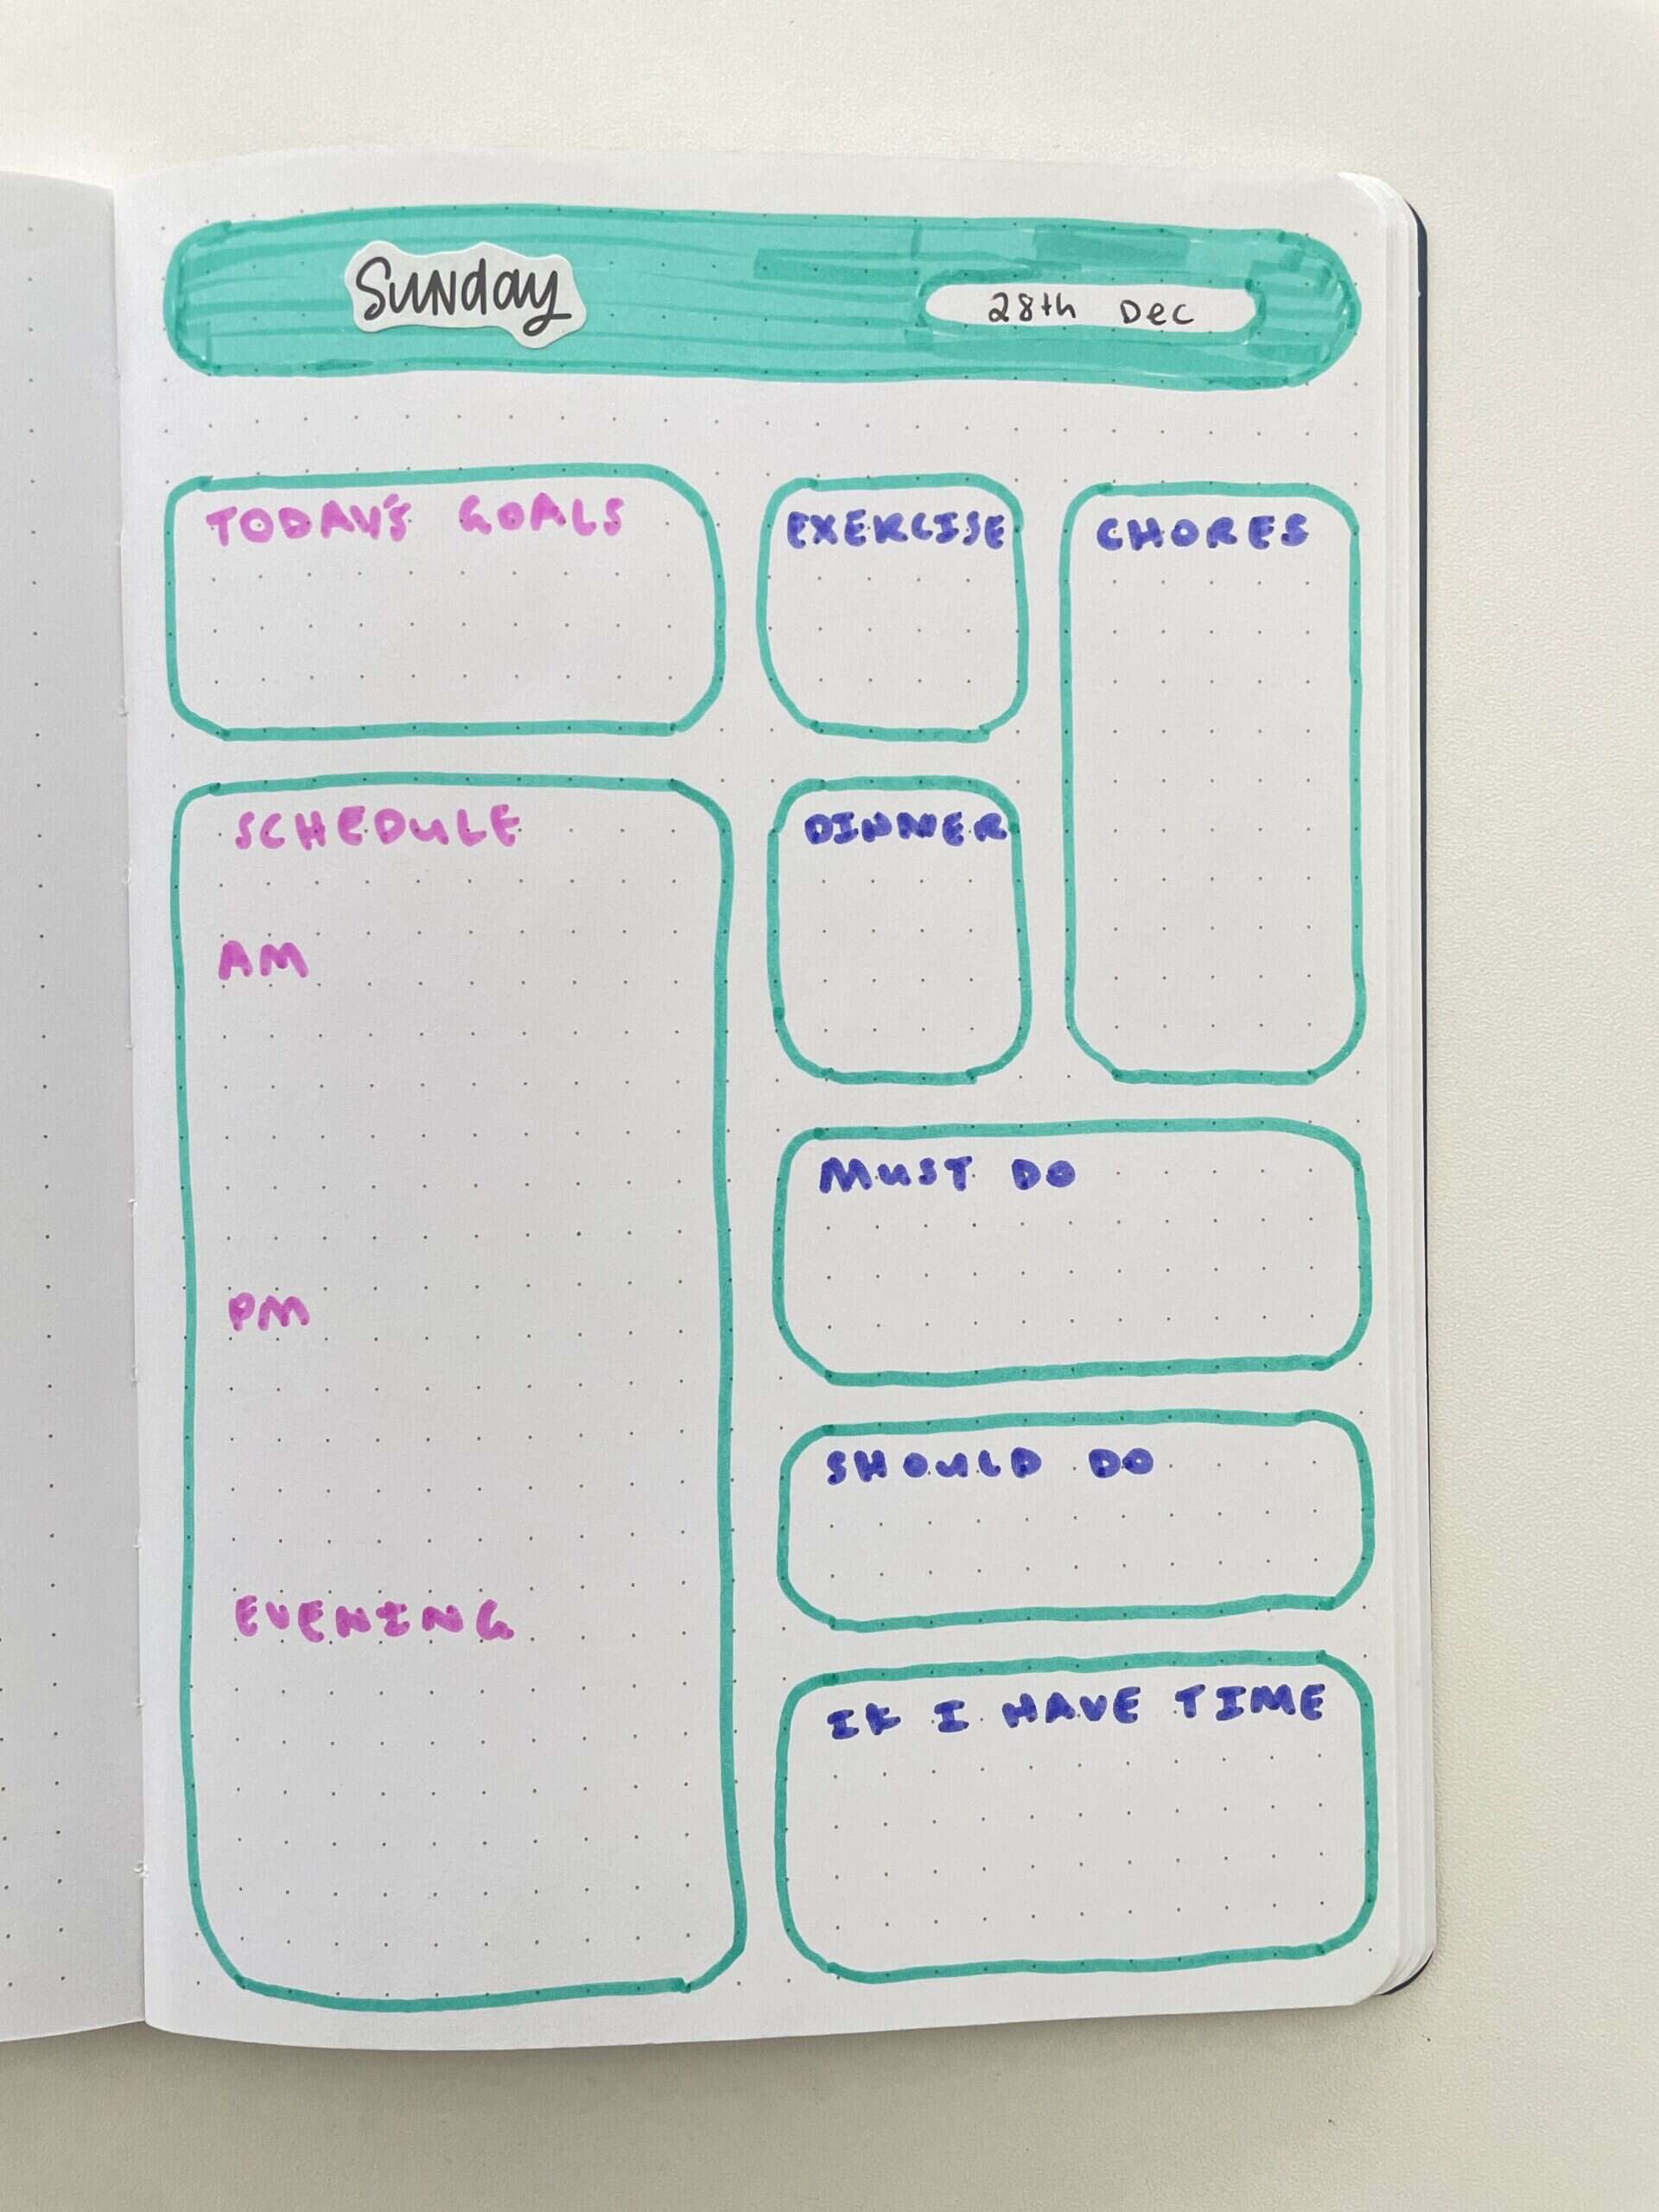 Sunday
28th Dec
TODAY'S GOALS
EXERCISE
CHORES
SCHEDULE
AM
PM
EVENING
DINNER
MUST DO
SHOULD DO
IF I HAVE TIME